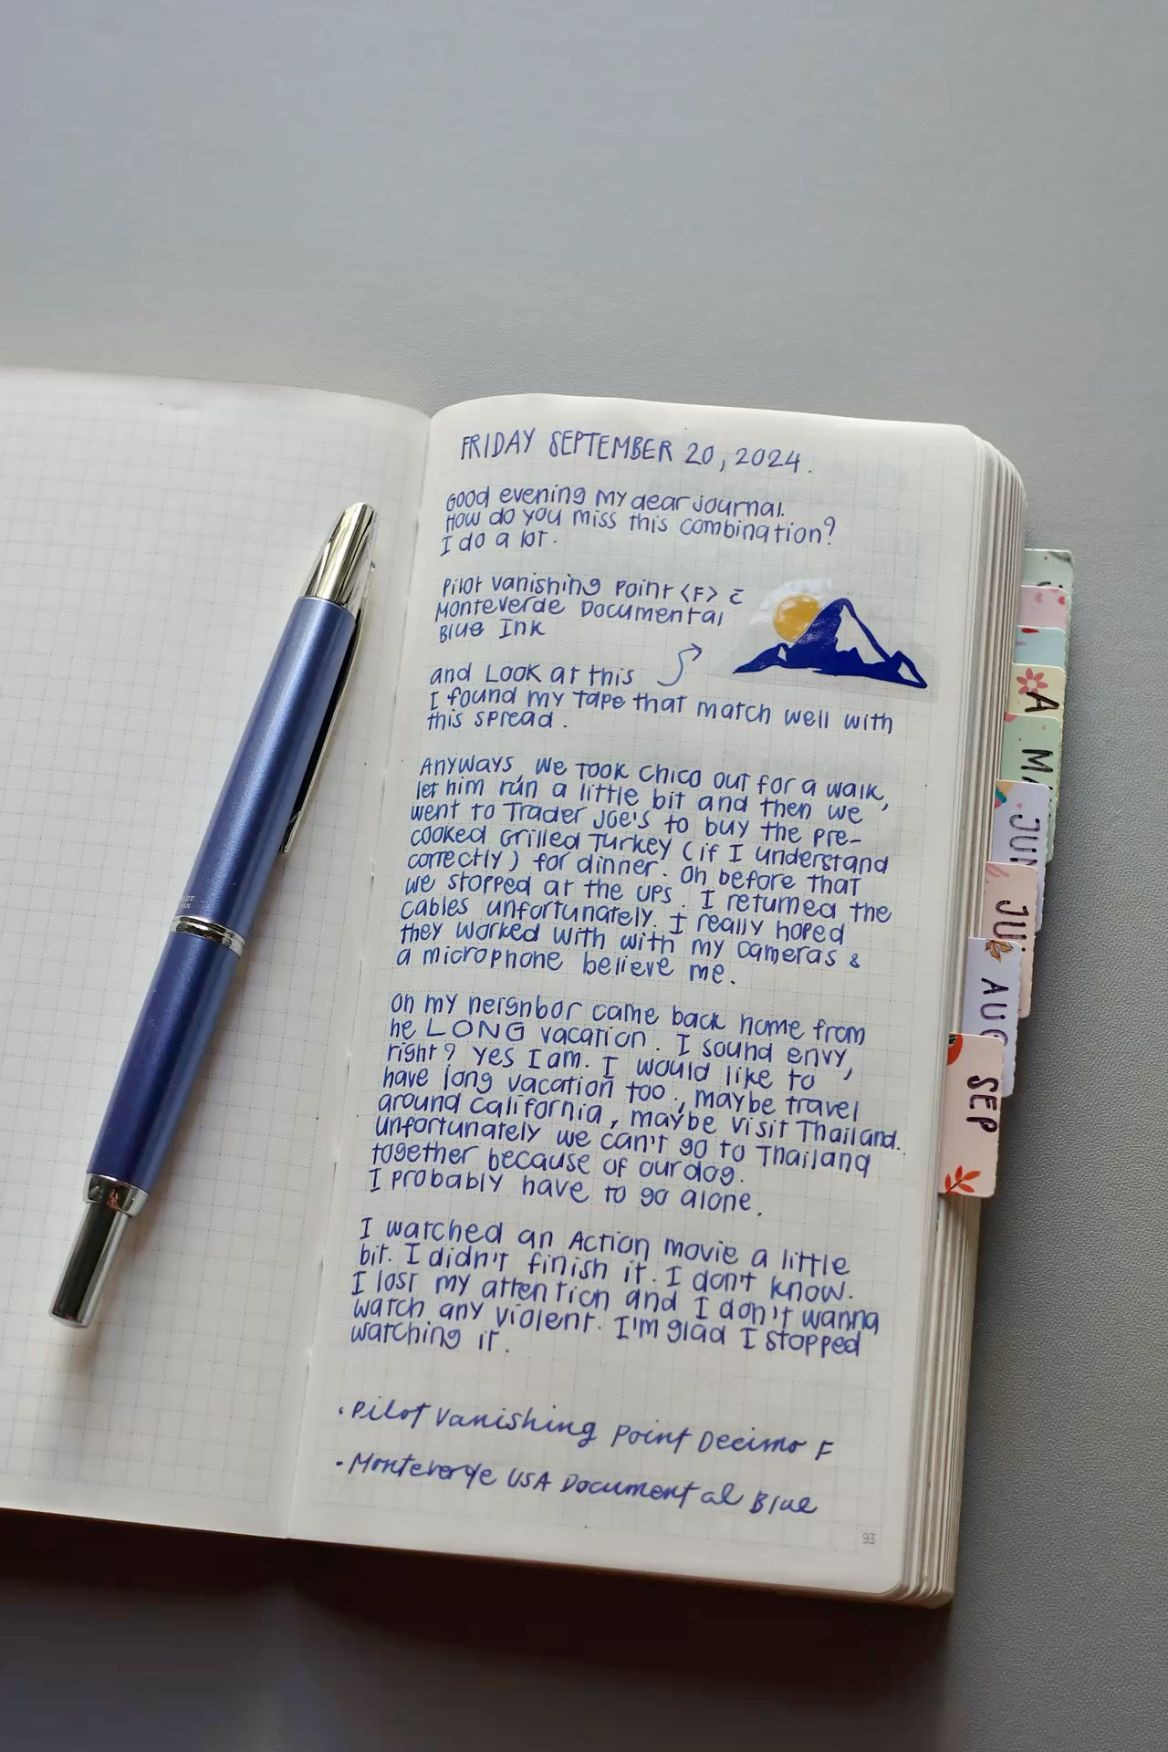 FRIDAY SEPTEMBER 20, 2024.
Good evening my dear journal.
How do you miss this combination?
I do a lot.
Pilot Vanishing Point <F> c̄
Monteverde Documental
Blue Ink
and Look at this
I found my tape that match well with
this spread.
Anyways, we took Chico out for a walk,
let him run a little bit and then we
went to Trader Joe's to buy the pre-
cooked Grilled Turkey (if I understand
correctly) for dinner. Oh before that
we stopped at the UPS. I returned the
cables unfortunately. I really hoped
they worked with with my cameras &
a microphone believe me.
Oh my neighbor came back home from
he LONG vacation. I sound envy,
right? Yes I am. I would like to
have long vacation too, maybe travel
around California, maybe visit Thailand.
Unfortunately we can't go to Thailand
together because of our dog.
I probably have to go alone.
I watched an Action movie a little
bit. I didn't finish it. I don't know.
I lost my attention and I don't wanna
watch any violent. I'm glad I stopped
watching it.
• Pilot Vanishing Point Decimo F
• Monteverde USA Documental Blue
93
A
MA
JUN
JUL
AUG
SEP